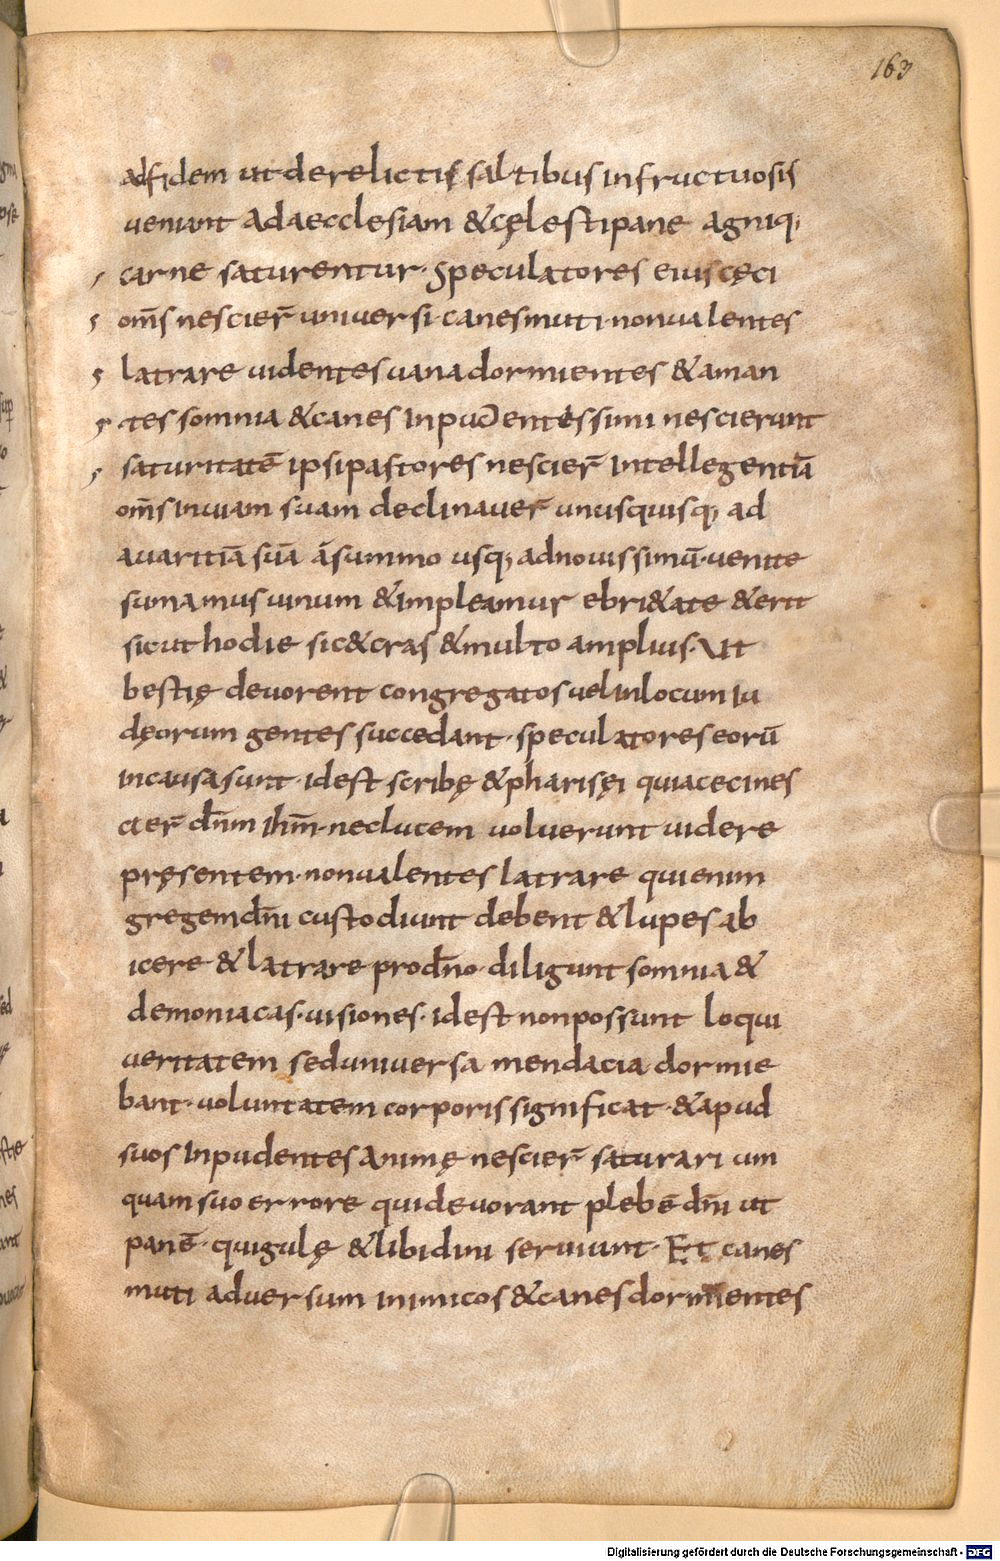 163
adfidem ut derelictis saltibus infructuosis
veniant adaecclesiam &cęlestipane agniq;
carne saturentur· Speculatores eiuscęci
om̄s nescier̄ universi· canesmuti· nonvalentes
latrare videntesvana dormientes &aman
tes somnia &canes inpudentessimi nescierunt
saturitatē ipsipastores nescier̄ intellegentiā
om̄s inviam suam declinaver̄ unusquisq; ad
avaritiā suā ásummo usq; adnovissimū· venite
sumamus vinum &impleamur ebri&ate &erit
sicut hodie sic&cras &multo amplius· Ut
bestię devorent congregatos vel inlocum iu
dęorum gentes succedant· speculatores eorū
incausasunt· idest scribę &pharisęi quiacecines
cter̄ dn̄m ihm̄· neclucem voluerunt videre
pręsentem· nonvalentes latrare quienim
gregemdn̄i custodiunt debent &lupes ab
icere &latrare prodn̄o· diligunt somnia &
demoniacas· visiones· idest nonpossunt loqui
veritatem seduniversa mendacia dormie
bant· voluntatem corporis significat· &apud
suos inpudentes animę nescier̄ saturari um
quam suo errore quidevorant plebē dn̄i ut
panē· quigulę &libidini serviunt· Et canes
muti adversum inimicos &canes dormientes
Digitalisierung gefördert durch die Deutsche Forschungsgemeinschaft - DFG